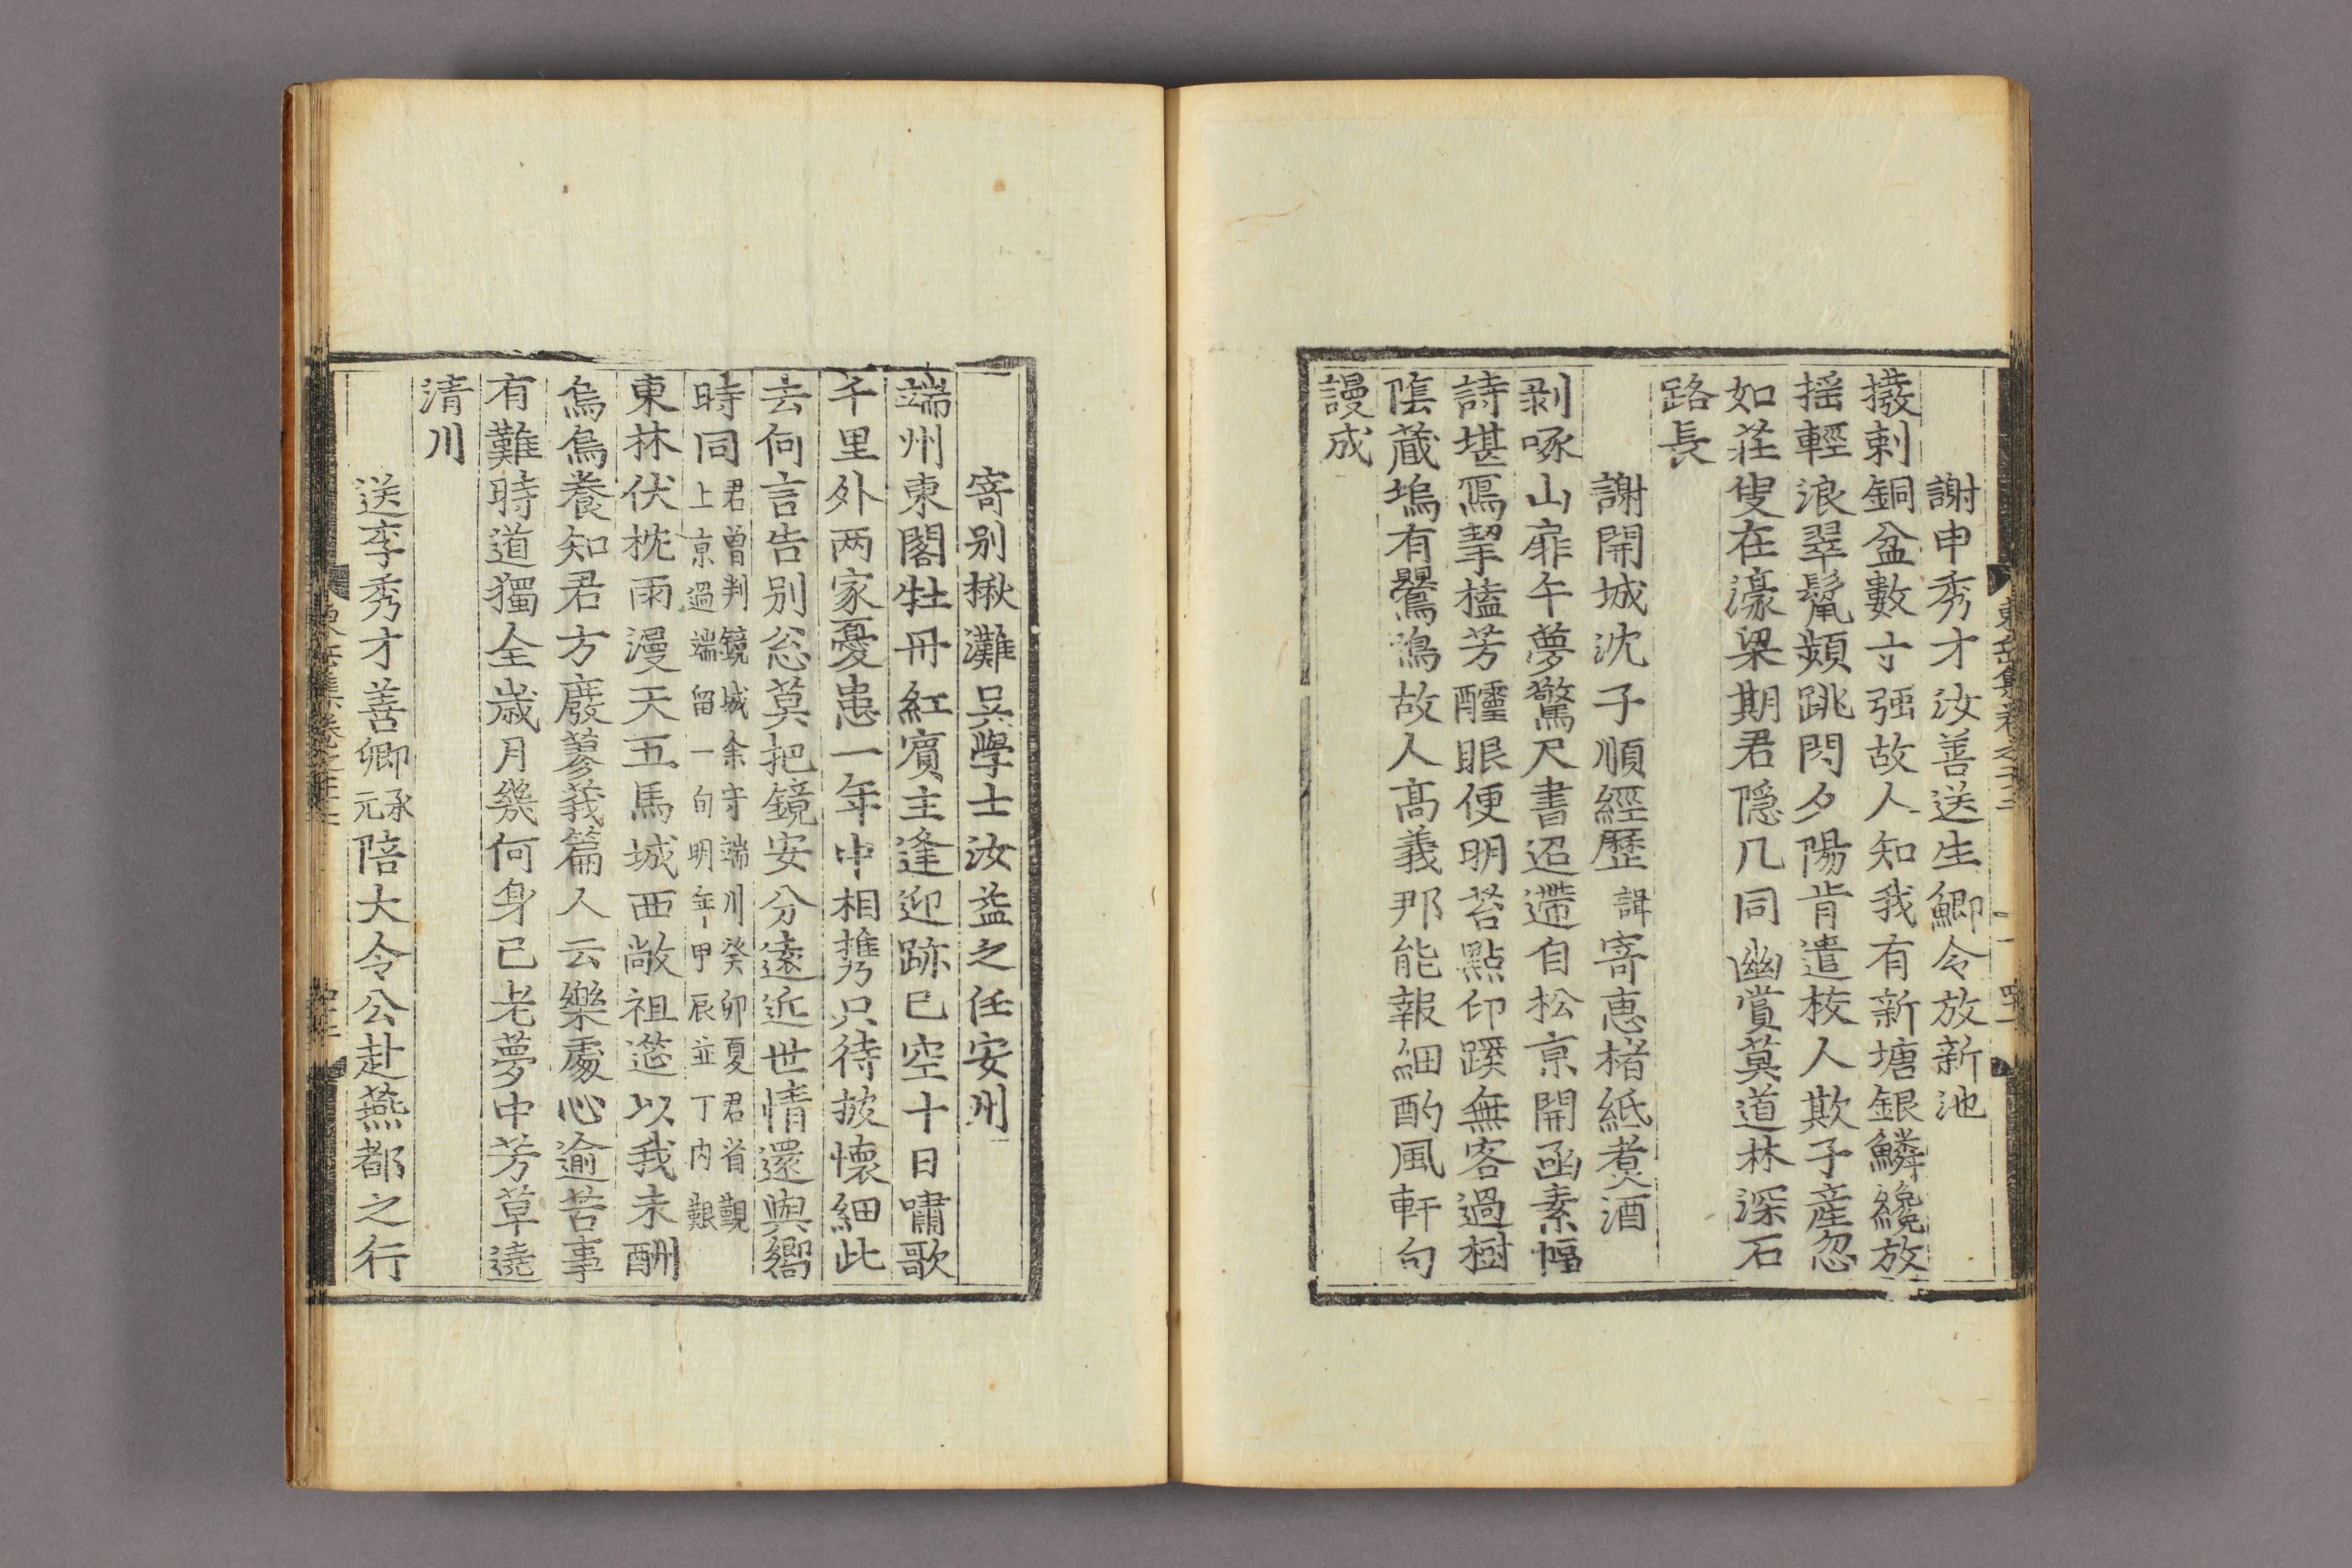 謝申秀才汝善送生鯽令放新池
撥剌銅盆數寸强故人知我有新塘銀鱗纔放
揺輕浪翠鬣頻跳閃夕陽肯遣校人欺子産忽
如莊叟在濠梁期君隱几同幽賞莫道林深石
路長
謝開城沈子順經歷諿寄惠楮紙煑酒
剥啄山扉午夢驚尺書迢遰自松京開函素幅
詩堪寫挈榼芳醺眼便明苔點印蹊無客過樹
陰蔵塢有鸎鳴故人高義那能報細酌風軒句
謾成
寄別楸灘吳學士汝益之任安州
端州東閣牡丹紅賓主逢迎跡已空十日嘯歌
千里外两家憂患一年中相携只待披懷細此
去何言告別忩莫把鏡安分遠近世情還與嚮
時同君曽判鏡城余守端川癸卯夏君省覲上京過端留一旬明年甲辰並丁内艱
東林伏枕雨漫天五馬城西敞祖筵以我未酬
烏鳥養知君方廢蓼莪篇人云樂處心逾苦事
有難時道獨全歳月幾何身已老夢中芳草遶
清川
送李秀才善卿承元陪大令公赴燕都之行